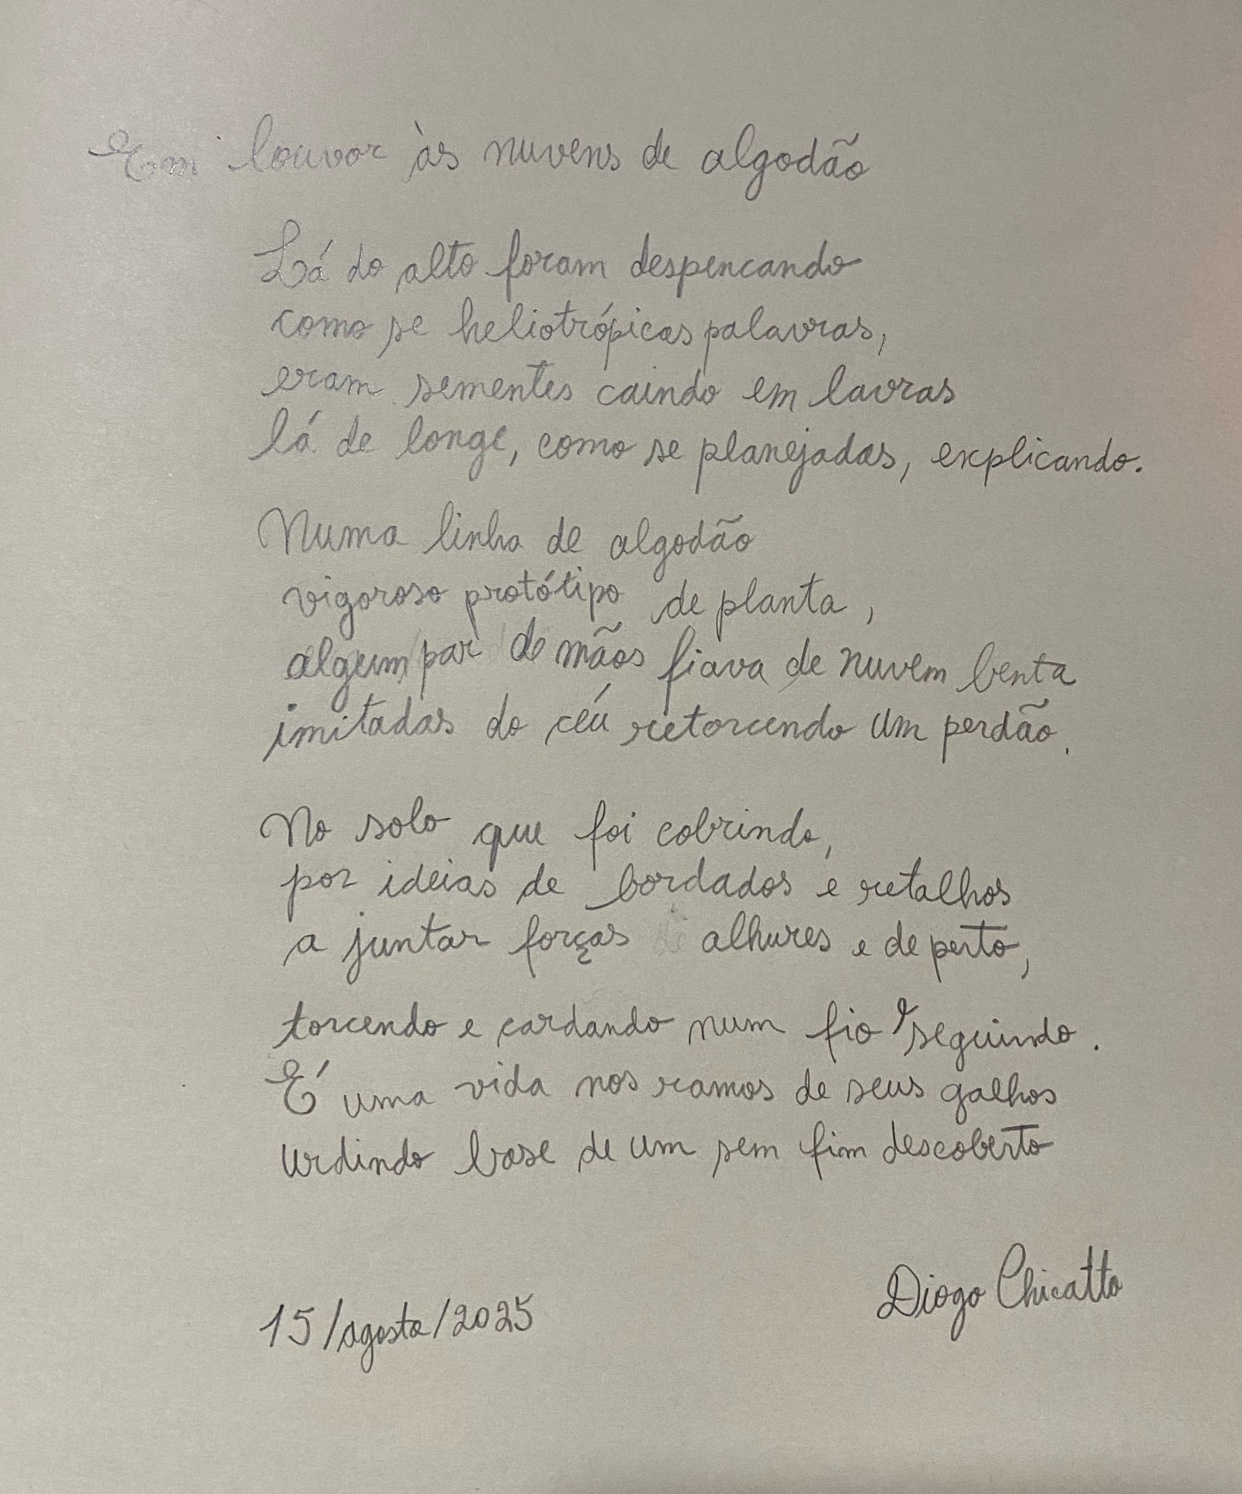 Em louvor às nuvens de algodão
Lá do alto foram despencando
como se heliotrópicas palavras,
eram sementes caindo em lavras
lá de longe, como se planejadas, explicando.
Numa linha de algodão
vigoroso protótipo de planta,
algum par de mãos fiava de nuvem benta
imitadas do céu retorcendo um perdão.
No solo que foi cobrindo,
por ideias de bordados e retalhos
a juntar forças alhures e de perto,
torcendo e cardando num fio seguindo.
É uma vida nos ramos de seus galhos
urdindo base de um sem fim descoberto
Diogo Chicatto
15/agosto/2025